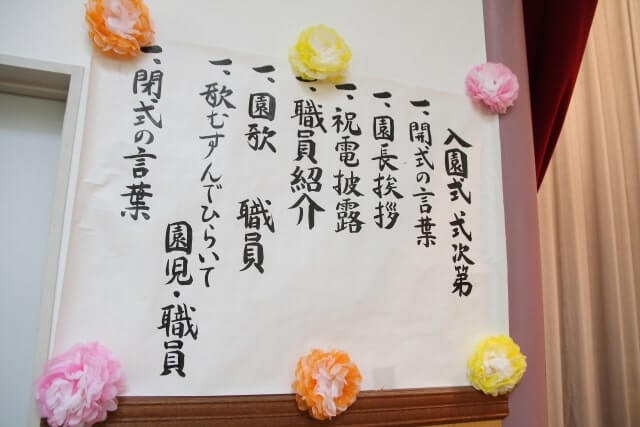 入園式 式次第
一、開式の言葉
一、園長挨拶
一、祝電披露
一、職員紹介
一、園歌 職員
一、歌むすんでひらいて
園児・職員
一、閉式の言葉